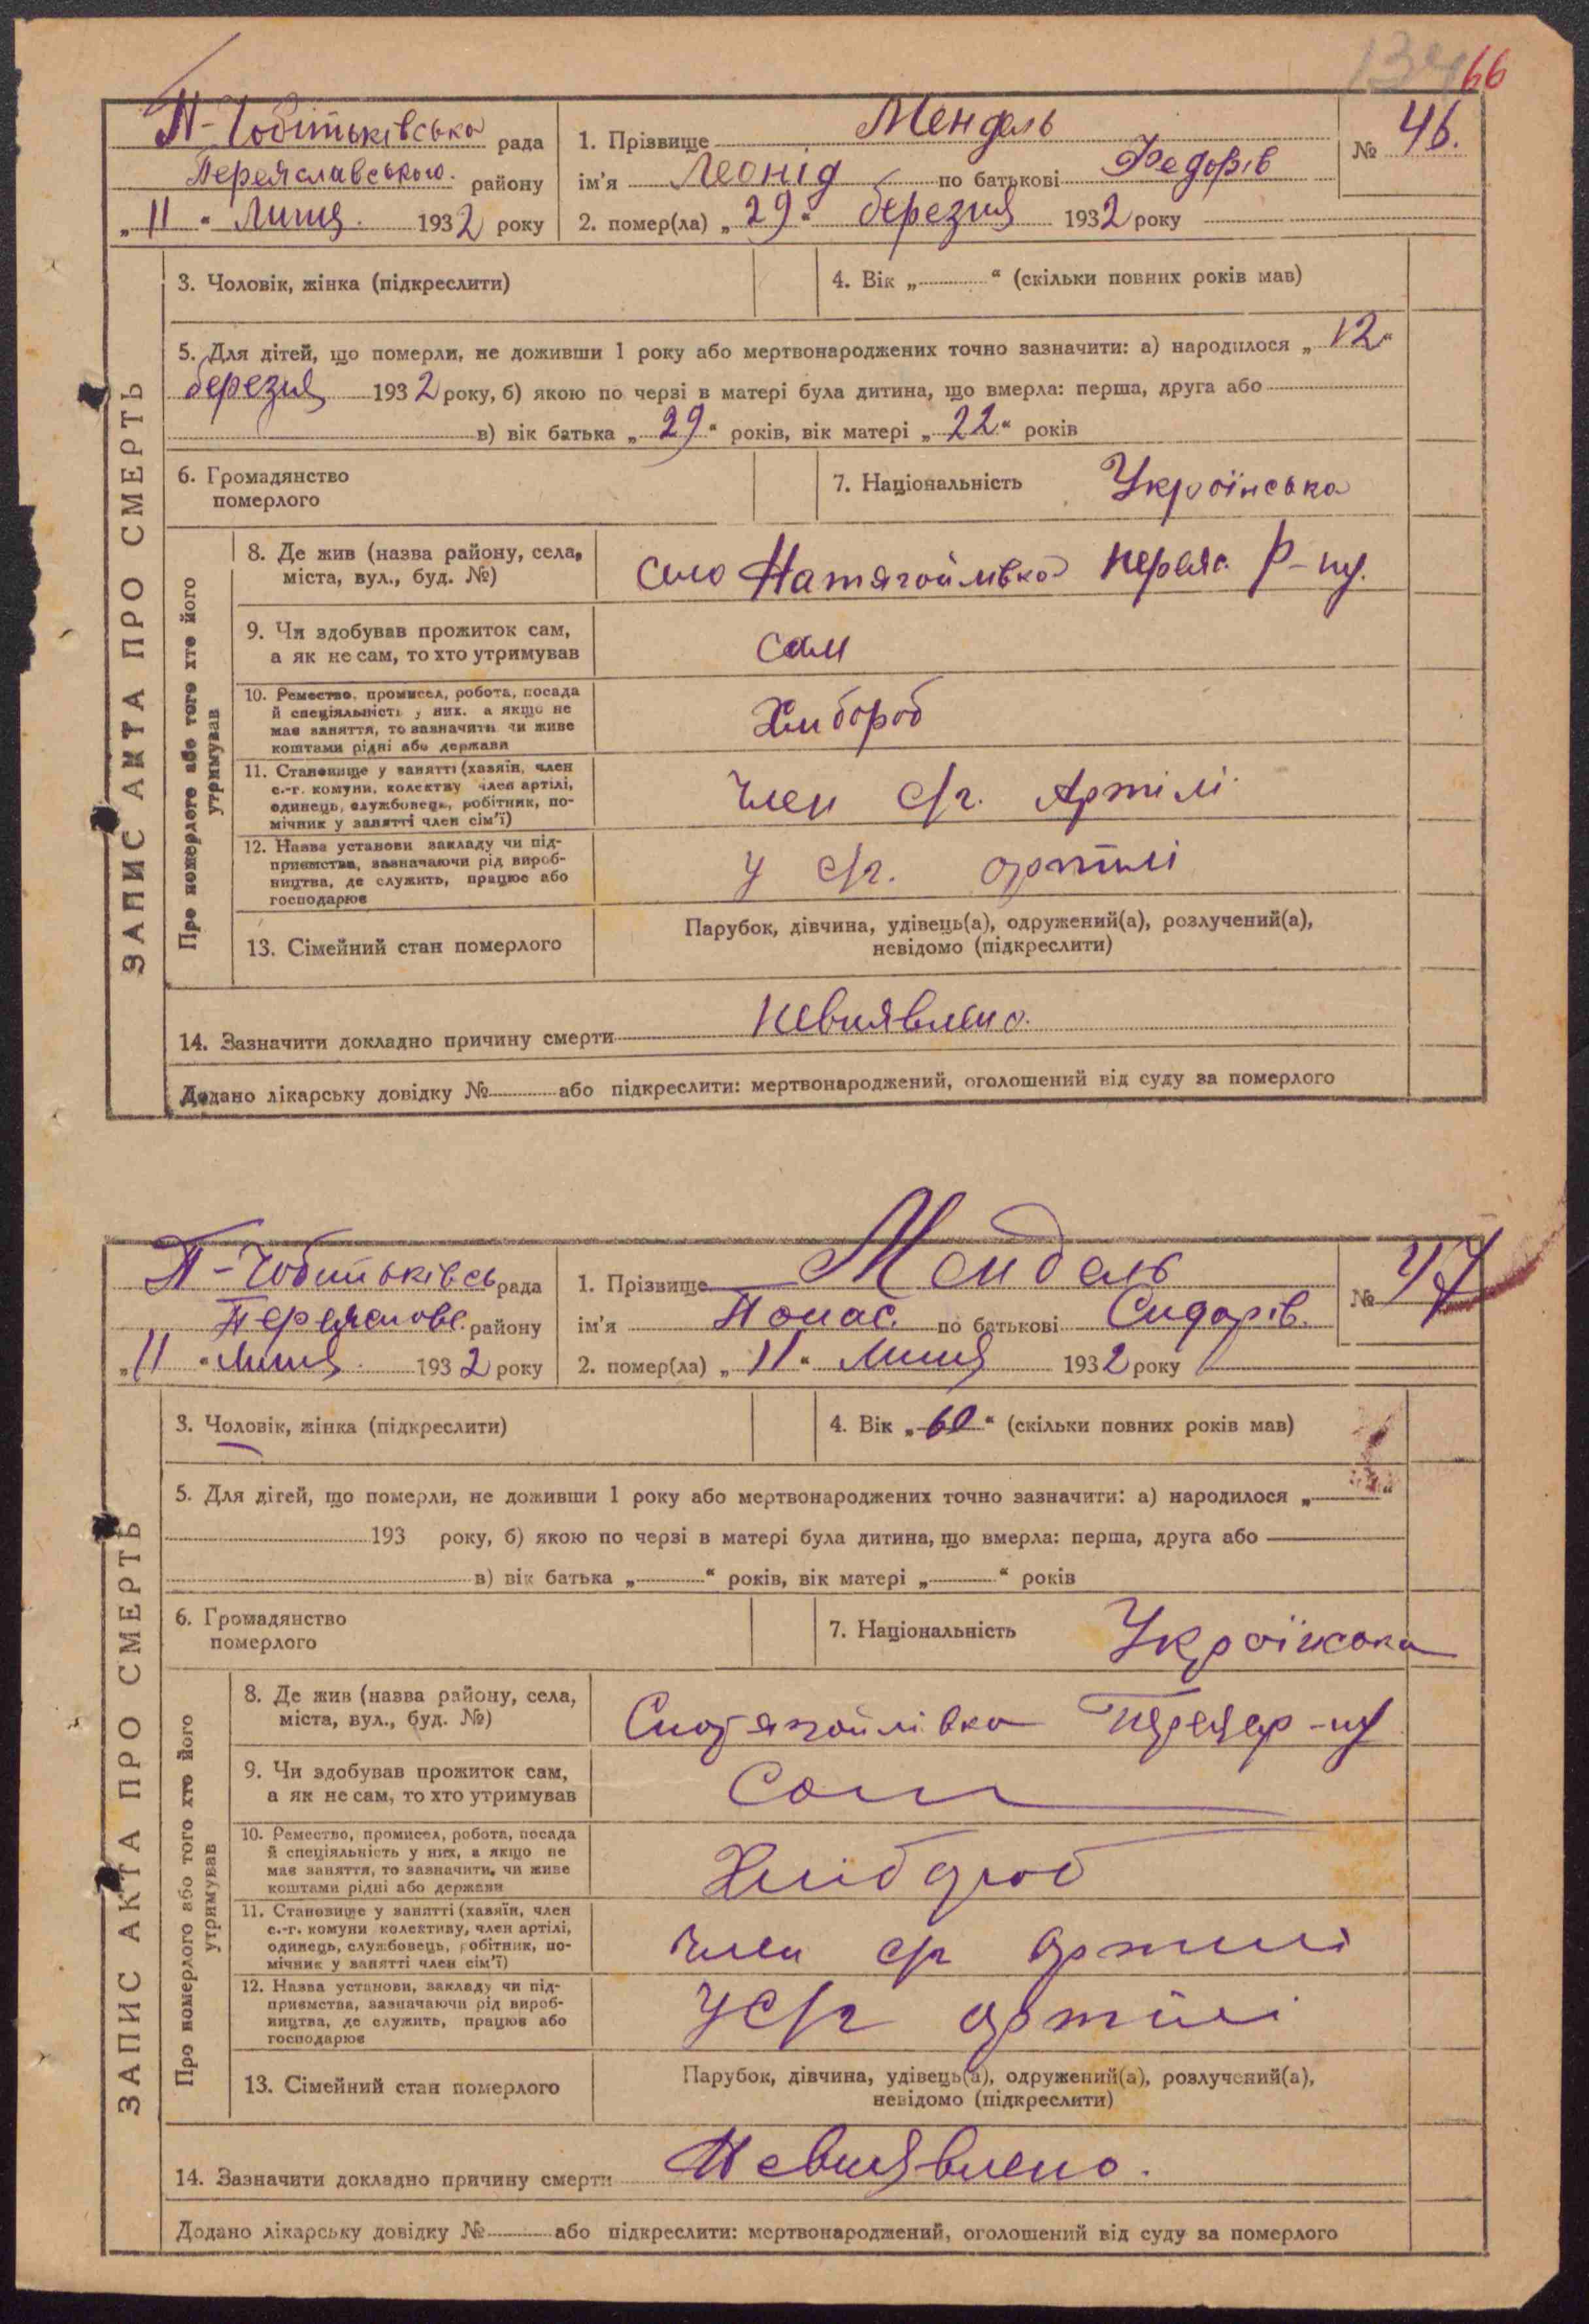 134 66
П-Чобітьківська рада
Переяславського району
„11“ Липня 1932 року
1. Прізвище Мендель
ім'я Леонід по батькові Федорів
2. помер(ла) „29“ березня 1932 року
№ 46.
ЗАПИС АКТА ПРО СМЕРТЬ
3. Чоловік, жінка (підкреслити)
4. Вік „ “ (скільки повних років мав)
5. Для дітей, що померли, не доживши 1 року або мертвонароджених точно зазначити: а) народилося „12“
березня 1932 року, б) якою по черзі в матері була дитина, що вмерла: перша, друга або
в) вік батька „29“ років, вік матері „22“ років
6. Громадянство
померлого
7. Національність Українська
Про померлого або того хто його
утримував
8. Де жив (назва району, села,
міста, вул., буд. №)
село Натягайлівка Переяс. Р-ну.
9. Чи здобував прожиток сам,
а як не сам, то хто утримував
сам
10. Ремество, промисел, робота, посада
й спеціяльність у них, а якщо не
має заняття, то зазначити чи живе
коштами рідні або держави
Хлібороб
11. Становище у занятті (хазяїн, член
с.-г. комуни, колективу член артілі,
одинець, службовець, робітник, по-
мічник у занятті член сім'ї)
Член с/г. Артілі
12. Назва установи закладу чи під-
приємства, зазначаючи рід вироб-
ництва, де служить, працює або
господарює
у с/г. артілі
13. Сімейний стан померлого
Парубок, дівчина, удівець(а), одружений(а), розлучений(а),
невідомо (підкреслити)
14. Зазначити докладно причину смерти Невиявлено.
Додано лікарську довідку № або підкреслити: мертвонароджений, оголошений від суду за померлого
П-Чобитьківсь рада
Переяславс. району
„11“ Липня 1932 року
1. Прізвище Мендель
ім'я Панас. по батькові Сидорів.
2. помер(ла) „11“ Липня 1932 року
№ 47
ЗАПИС АКТА ПРО СМЕРТЬ
3. Чоловік, жінка (підкреслити)
4. Вік „60“ (скільки повних років мав)
5. Для дітей, що померли, не доживши 1 року або мертвонароджених точно зазначити: а) народилося „ “
193 року, б) якою по черзі в матері була дитина, що вмерла: перша, друга або
в) вік батька „ “ років, вік матері „ “ років
6. Громадянство
померлого
7. Національність Українська
Про померлого або того хто його
утримував
8. Де жив (назва району, села,
міста, вул., буд. №)
9. Чи здобував прожиток сам,
а як не сам, то хто утримував
Сам
10. Ремество, промисел, робота, посада
й спеціяльність у них, а якщо не
має заняття, то зазначити, чи живе
коштами рідні або держави
Хлібороб
11. Становище у занятті (хазяїн, член
с.-г. комуни колективу, член артілі,
одинець, службовець, робітник, по-
мічник у занятті член сім'ї)
Член с/г артилі
12. Назва установи, закладу чи під-
приємства, зазначаючи рід вироб-
ництва, де служить, працює або
господарює
У с/г артілі
13. Сімейний стан померлого
Парубок, дівчина, удівець(а), одружений(а), розлучений(а),
невідомо (підкреслити)
14. Зазначити докладно причину смерти Невиявлено.
Додано лікарську довідку № або підкреслити: мертвонароджений, оголошений від суду за померлого